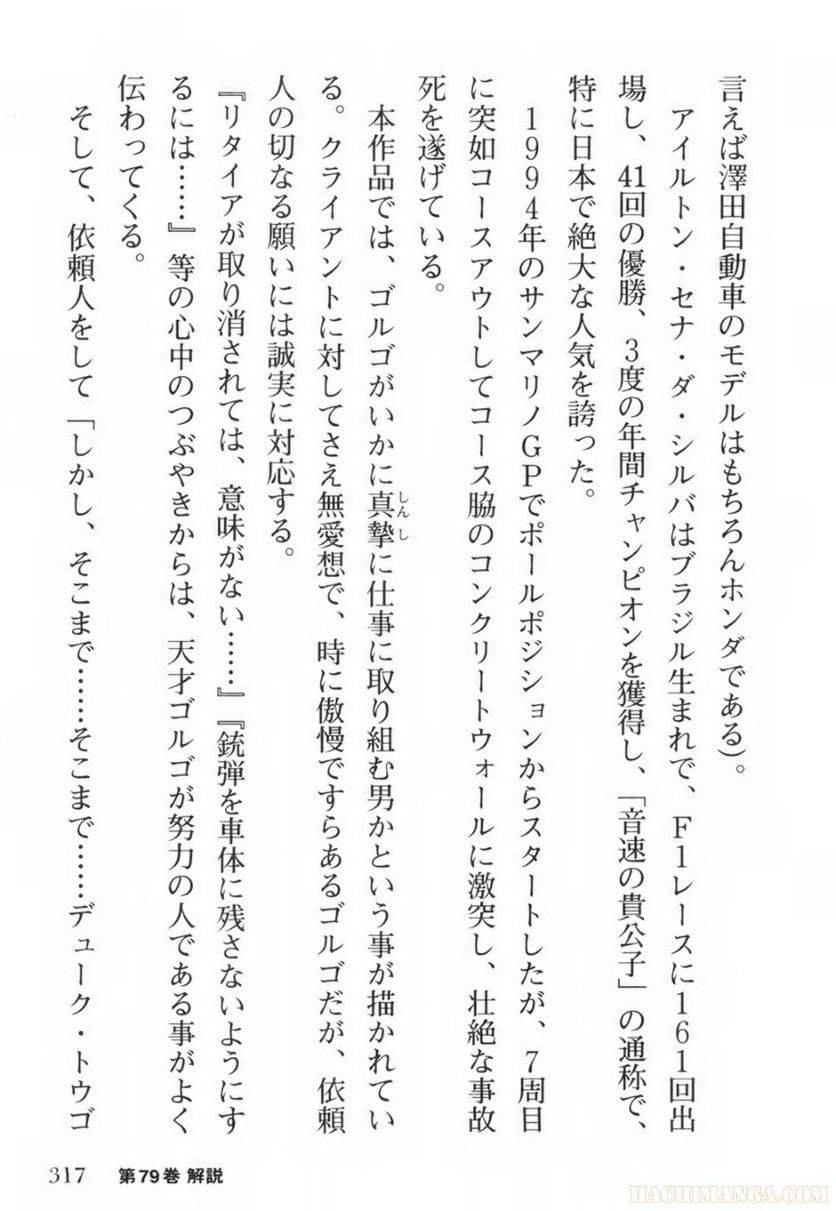 言えば澤田自動車のモデルはもちろんホンダである)。
アイルトン・セナ・ダ・シルバはブラジル生まれで、F1レースに161回出
場し、41回の優勝、3度の年間チャンピオンを獲得し、「音速の貴公子」の通称で、
特に日本で絶大な人気を誇った。
1994年のサンマリノGPでポールポジションからスタートしたが、7周目
に突如コースアウトしてコース脇のコンクリートウォールに激突し、壮絶な事故
死を遂げている。
本作品では、ゴルゴがいかに真摯しんしに仕事に取り組む男かという事が描かれてい
る。クライアントに対してさえ無愛想で、時に傲慢ですらあるゴルゴだが、依頼
人の切なる願いには誠実に対応する。
『リタイアが取り消されては、意味がない……』『銃弾を車体に残さないようにす
るには……』等の心中のつぶやきからは、天才ゴルゴが努力の人である事がよく
伝わってくる。
そして、依頼人をして「しかし、そこまで……そこまで……デューク・トウゴ
317 第79巻 解説
HACHIMANGA.COM